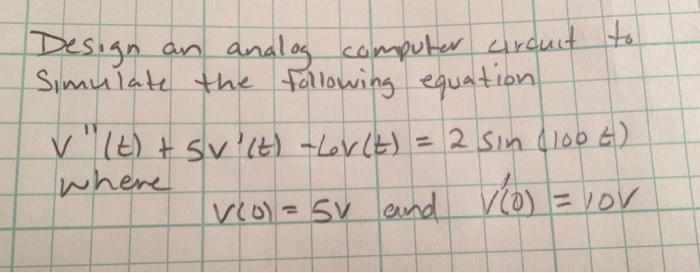 Design an analog computer circuit to
Simulate the following equation
v"(t) + 5v'(t) - 6v(t) = 2 sin (100 t)
where
v(0) = 5V and v'(0) = 10V